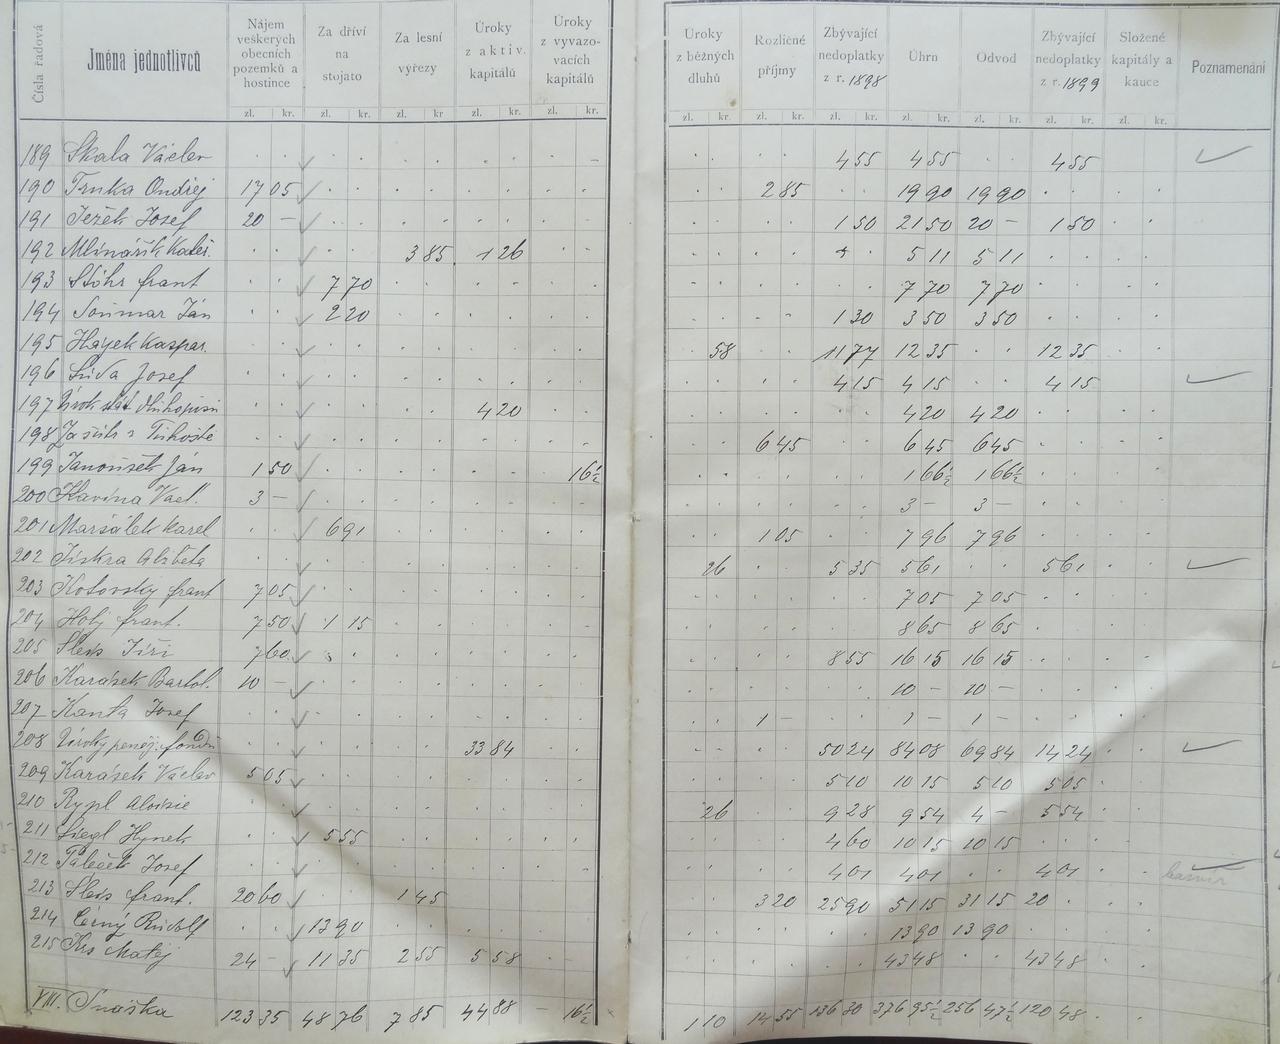 Čísla řadová Jména jednotlivců Nájem veškerých obecních pozemků a hostince Za dříví na stojato Za lesní výřezy Úroky z aktiv. kapitálů Úroky z vyvazovacích kapitálů Úroky z běžných dluhů Rozličné příjmy Zbývající nedoplatky z r. 1898 Úhrn Odvod Zbývající nedoplatky z r. 1899 Složené kapitály a kauce Poznamenání
zl. kr. zl. kr. zl. kr. zl. kr. zl. kr. zl. kr. zl. kr. zl. kr. zl. kr. zl. kr. zl. kr. zl. kr.
189 Skala Václav 4 55 4 55 4 55
190 Trnka Ondřej 17 05 2 85 19 90 19 90
191 Ježek Josef 20 — 1 50 21 50 20 — 1 50
192 Mlinářík 3 85 1 26 5 11 5 11
193 Stöhr frant 7 70 7 70 7 70
194 Ján 2 20 1 30 3 50 3 50
195 Hayek Kaspar. 58 11 77 12 35 12 35
196 Josef 4 15 4 15 4 15
197 4 20 4 20 4 20
198 6 45 6 45 6 45
199 Janoušek Ján 1 50 16½ 1 66½ 1 66½
200 Havina Vacl. 3 — 3 — 3 —
201 Maršálek Karel 6 91 1 05 7 96 7 96
202 Jiskra Alžběta 26 5 35 5 61 5 61
203 Kotovský frant 7 05 7 05 7 05
204 Holý frant. 7 50 1 15 8 65 8 65
205 Šleis Jiří 7 60 8 55 16 15 16 15
206 Karásek Bartol. 10 — 10 — 10 —
207 Kanta Josef 1 — 1 — 1 —
208 Úroky peněž. fondu 33 84 50 24 84 08 69 84 14 24
209 Karásek Václav 5 05 5 10 10 15 5 10 5 05
210 Rypl Aloisie 26 9 28 9 54 4 — 5 54
211 Siegl Hynek 5 55 4 60 10 15 10 15
212 Paleček Josef 4 01 4 01 4 01
213 Šleis frant. 20 60 1 45 3 20 25 90 51 15 31 15 20
214 Černý Rudolf 13 90 13 90 13 90
215 Kis Matěj 24 — 11 35 2 55 5 58 43 48 43 48
VIII. Snáška 123 35 48 76 7 85 44 88 — 16½ 1 10 14 55 136 30 376 95½ 256 47½ 120 48